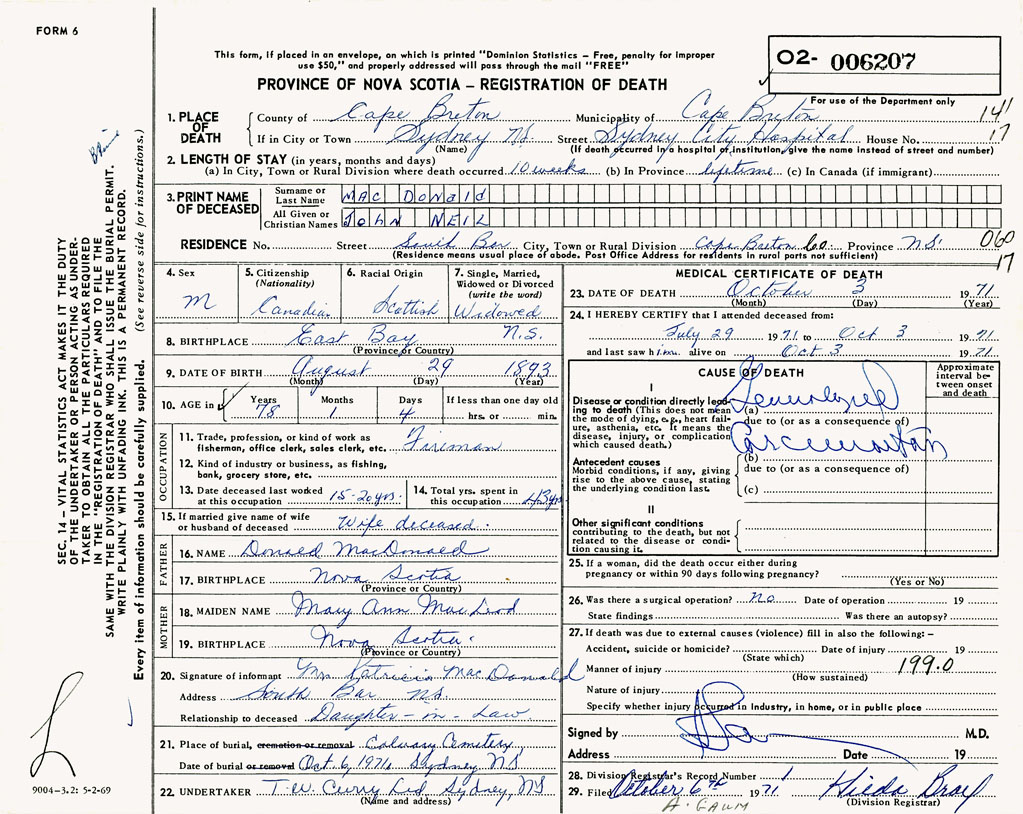 FORM 6
This form, if placed in an envelope, on which is printed "Dominion Statistics – Free, penalty for improper
use $50," and properly addressed will pass through the mail "FREE"
O2- 006207
PROVINCE OF NOVA SCOTIA – REGISTRATION OF DEATH
For use of the Department only
1. PLACE OF DEATH
County of Cape Breton Municipality of Cape Breton 141
If in City or Town Sydney NS Street Sydney City Hospital House No. 17
(Name) (If death occurred in a hospital or institution, give the name instead of street and number)
2. LENGTH OF STAY (in years, months and days)
(a) In City, Town or Rural Division where death occurred 10 weeks (b) In Province lifetime (c) In Canada (if immigrant)
3. PRINT NAME OF DECEASED
Surname or Last Name MAC DONALD
All Given or Christian Names JOHN NEIL
RESIDENCE No. Street South Bar City, Town or Rural Division Cape Breton Co. Province N.S. 060
(Residence means usual place of abode. Post Office Address for residents in rural parts not sufficient) 17
4. Sex M
5. Citizenship (Nationality) Canadian
6. Racial Origin Scottish
7. Single, Married, Widowed or Divorced (write the word) Widowed
8. BIRTHPLACE East Bay N.S.
(Province or Country)
9. DATE OF BIRTH August 29 1893
(Month) (Day) (Year)
10. AGE in Years 78 Months 1 Days 4 If less than one day old hrs. or min.
OCCUPATION
11. Trade, profession, or kind of work as fisherman, office clerk, sales clerk, etc. Fireman
12. Kind of industry or business, as fishing, bank, grocery store, etc.
13. Date deceased last worked at this occupation 15-20 yrs.
14. Total yrs. spent in this occupation 43 yrs
15. If married give name of wife or husband of deceased Wife deceased.
FATHER
16. NAME Donald MacDonald
17. BIRTHPLACE Nova Scotia
(Province or Country)
MOTHER
18. MAIDEN NAME Mary Ann MacLeod
19. BIRTHPLACE Nova Scotia
(Province or Country)
20. Signature of informant Mrs Patricia MacDonald
Address South Bar NS.
Relationship to deceased Daughter-in-Law
21. Place of burial, cremation or removal Calvary Cemetery,
Date of burial or removal Oct. 6, 1971, Sydney, NS
22. UNDERTAKER T.W. Curry Ltd, Sydney, NS
(Name and address)
MEDICAL CERTIFICATE OF DEATH
23. DATE OF DEATH October 3 1971
(Month) (Day) (Year)
24. I HEREBY CERTIFY that I attended deceased from:
July 29 1971 to Oct 3 1971
and last saw him alive on Oct. 3 1971
CAUSE OF DEATH
Approximate interval between onset and death
I
Disease or condition directly leading to death (This does not mean the mode of dying, e.g., heart failure, asthenia, etc. It means the disease, injury, or complication which caused death.)
(a)
due to (or as a consequence of)
Antecedent causes
Morbid conditions, if any, giving rise to the above cause, stating the underlying condition last.
(b)
due to (or as a consequence of)
(c)
II
Other significant conditions contributing to the death, but not related to the disease or condition causing it.
25. If a woman, did the death occur either during pregnancy or within 90 days following pregnancy?
(Yes or No)
26. Was there a surgical operation? No Date of operation 19
State findings Was there an autopsy?
27. If death was due to external causes (violence) fill in also the following: –
Accident, suicide or homicide? Date of injury 19
(State which)
Manner of injury 199.0
(How sustained)
Nature of injury
Specify whether injury occurred in Industry, in home, or in public place
Signed by M.D.
Address Date 19
28. Division Registrar's Record Number 1
29. Filed October 6th 1971 Hilda
(Division Registrar)
SEC. 14 – VITAL STATISTICS ACT MAKES IT THE DUTY
OF THE UNDERTAKER OR PERSON ACTING AS UNDER-
TAKER TO OBTAIN ALL THE PARTICULARS REQUIRED
IN THE "REGISTRATION OF DEATH" AND TO FILE THE
SAME WITH THE DIVISION REGISTRAR WHO SHALL ISSUE THE BURIAL PERMIT.
WRITE PLAINLY WITH UNFADING INK. THIS IS A PERMANENT RECORD.
Every item of information should be carefully supplied. (See reverse side for instructions.)
9004-3.2: 5-2-69